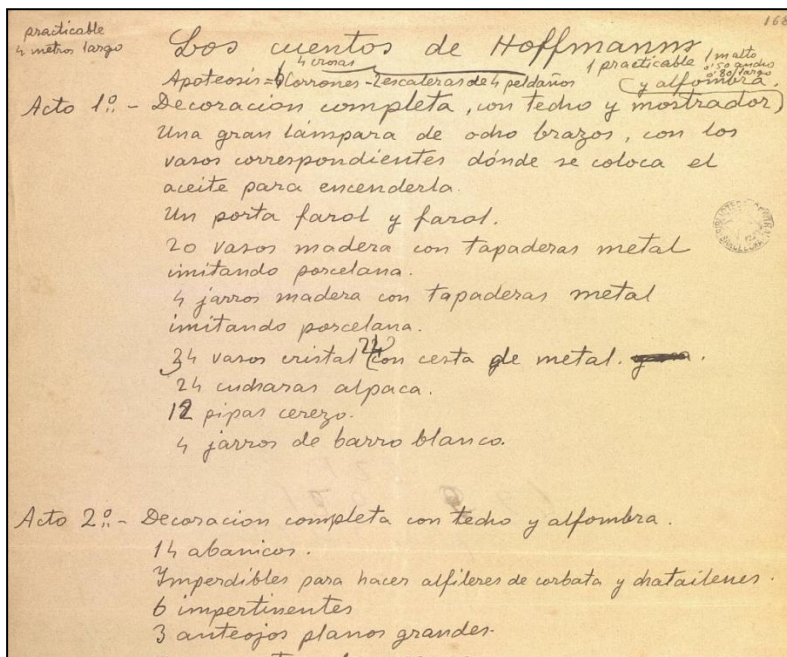 168
practicable
4 metros largo
Los cuentos de Hoffmanns
4 crosas
1 practicable 1 m alto
0'50 ancho
0'80 largo
Apoteosis = 6 Corrones - 2 escaleras de 4 peldaños (y alfombra.
Acto 1º. - Decoracion completa, con techo y mostrador)
Una gran lámpara de ocho brazos, con los
vasos correspondientes dónde se coloca el
aceite para encenderla.
Un porta farol y farol.
20 vasos madera con tapaderas metal
imitando porcelana.
4 jarros madera con tapaderas metal
imitando porcelana.
34 vasos cristal 24 (con cesta de metal.
24 cucharas alpaca.
12 pipas cerezo.
4 jarros de barro blanco.
Acto 2º. - Decoracion completa con techo y alfombra.
14 abanicos.
Imperdibles para hacer alfileres de corbata y chatailenes.
6 impertinentes
3 anteojos planos grandes.